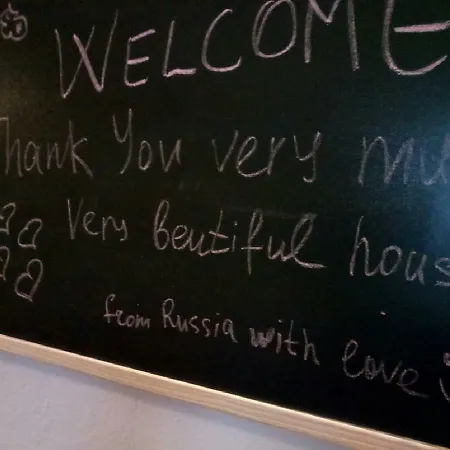 WELCOME
Thank You very mu
Very beutiful hous
from Russia with love